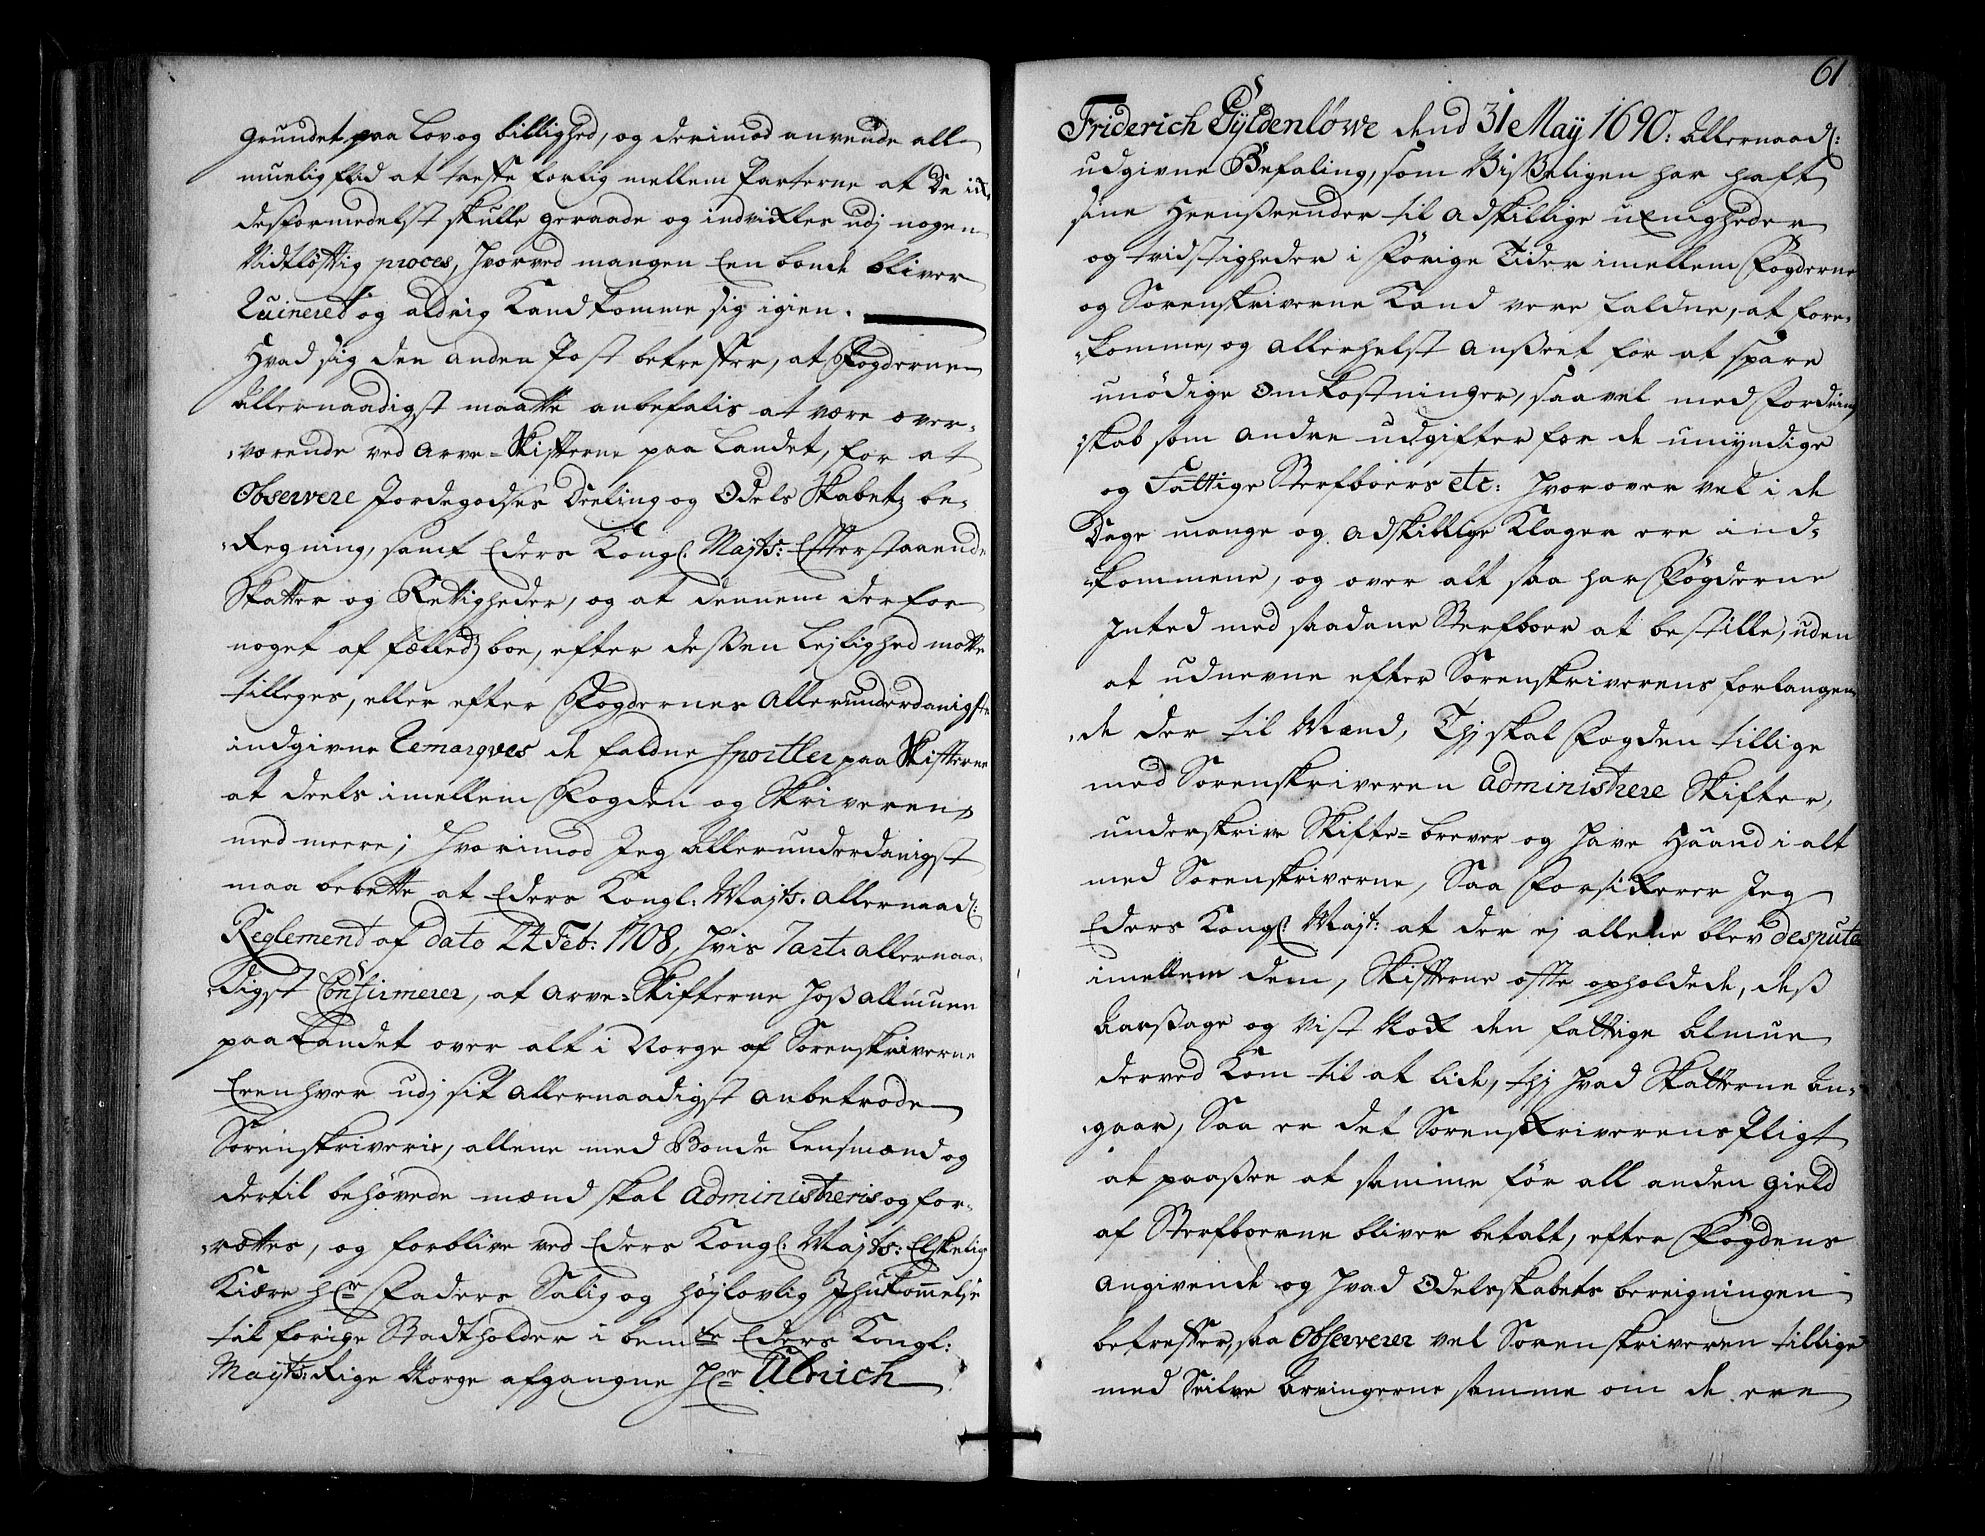 grundet paa Lov og billighed, og derimod anvende all
muelig flid at treffe forlig mellem Parterne at De ik,,
desformedelst skulle geraade og indvikles udj nogen
Vidtløftig proces, hvorved mangen Een bonde bliver
Ruineret og aldrig Kand komme sig igien.
Hvad sig den anden Post betreffer, at Fogderne
Allernaadigst maatte anbefalis at være over-
,,værende ved Arve-Skifterne paa Landet, for at
Observere Jordegodses Deeling og Odels Skabets be-
,,Regning, samt Eders Kongl: Majts: Efterstaaende
Skatter og Rettigheder, og at dennem derfor
noget af fælleds boe, efter dessen Lejlighed motte
tilleges, eller efter Fogdernes Allerunderdanigste
indgivne Remarqves de faldne sportler paa Skifterne
at deels imellem Fogden og Skriveren,
med meere; Hvorimod Jeg Allerunderdanigst
maa berette at Eders Kongl: Majts. allernaad:
Reglement af dato 24 Feb: 1708, hvis 7 art: allernaa-
,,digst Confirmerer, at Arve-Skifterne hos Allmuen
paa Landet over alt i Norge af Sorenskriverne
Eenhver udj sit Allernaadigst anbetrode
Sorenskriverie, allene med Bonde Lensmænd og
dertil behøvede mænd skal Administreris og for-
,,rettes, og forblive ved Eders Kongl: Majts: Elskelig
Kiære Hr Faders Salig og Højlovlig Ihukommelse
til forige Stadtholder i bemte Eders Kongl:
Majts: Rige Norge afgangne Hr Ulrich
61
Friderich Gyldenløwe dend 31 May 1690: Allernaad:
udgivne Befaling, som Visseligen har haft
sine Heenseender til adskillige uenigheder
og tvidstigheder i Forige Tider imellem Fogderne
og Sorenskriverne Kand vere faldne, at fore-
,,komme, og allerhelst anseet for at spare
unødige Omkostninger, saavel med Fordring
,,skab som andre udgifter for de umyndige
og Fattige Sterfboers etc: hvorover vel i de
Dage mange og adskillige Klager ere ind-
,,kommene, og over alt saa har Fogderne
Inted med saadane Sterfboer at bestille, uden
at udnevne efter Sorenskriverens forlangen-
,,de der til Mænd, Thj skal Fogden tillige
med Sorenskriveren administrere Skifter,
underskrive Skifte-brever og have Haand i alt
med Sorenskriverne, Saa Forsikerer Jeg
Eders Kongl: Majt: at der ej allene blev despute
imellem dem, Skifterne offte opholdede, dess
Aarsage og Vist Nok den fattige Almue
derved Kom til at lide, thj hvad Skatterne an-
,,gaar, Saa er det Sorenskriverens Pligt
at paasee at samme før all anden gield
af Sterfboerne bliver betalt, efter Fogdens
Angivende og hvad Odelsskabets bereigningen
betreffer, saa Observerer vel Sorenskriveren tillige
med Selve Arvingerne samme om de ere